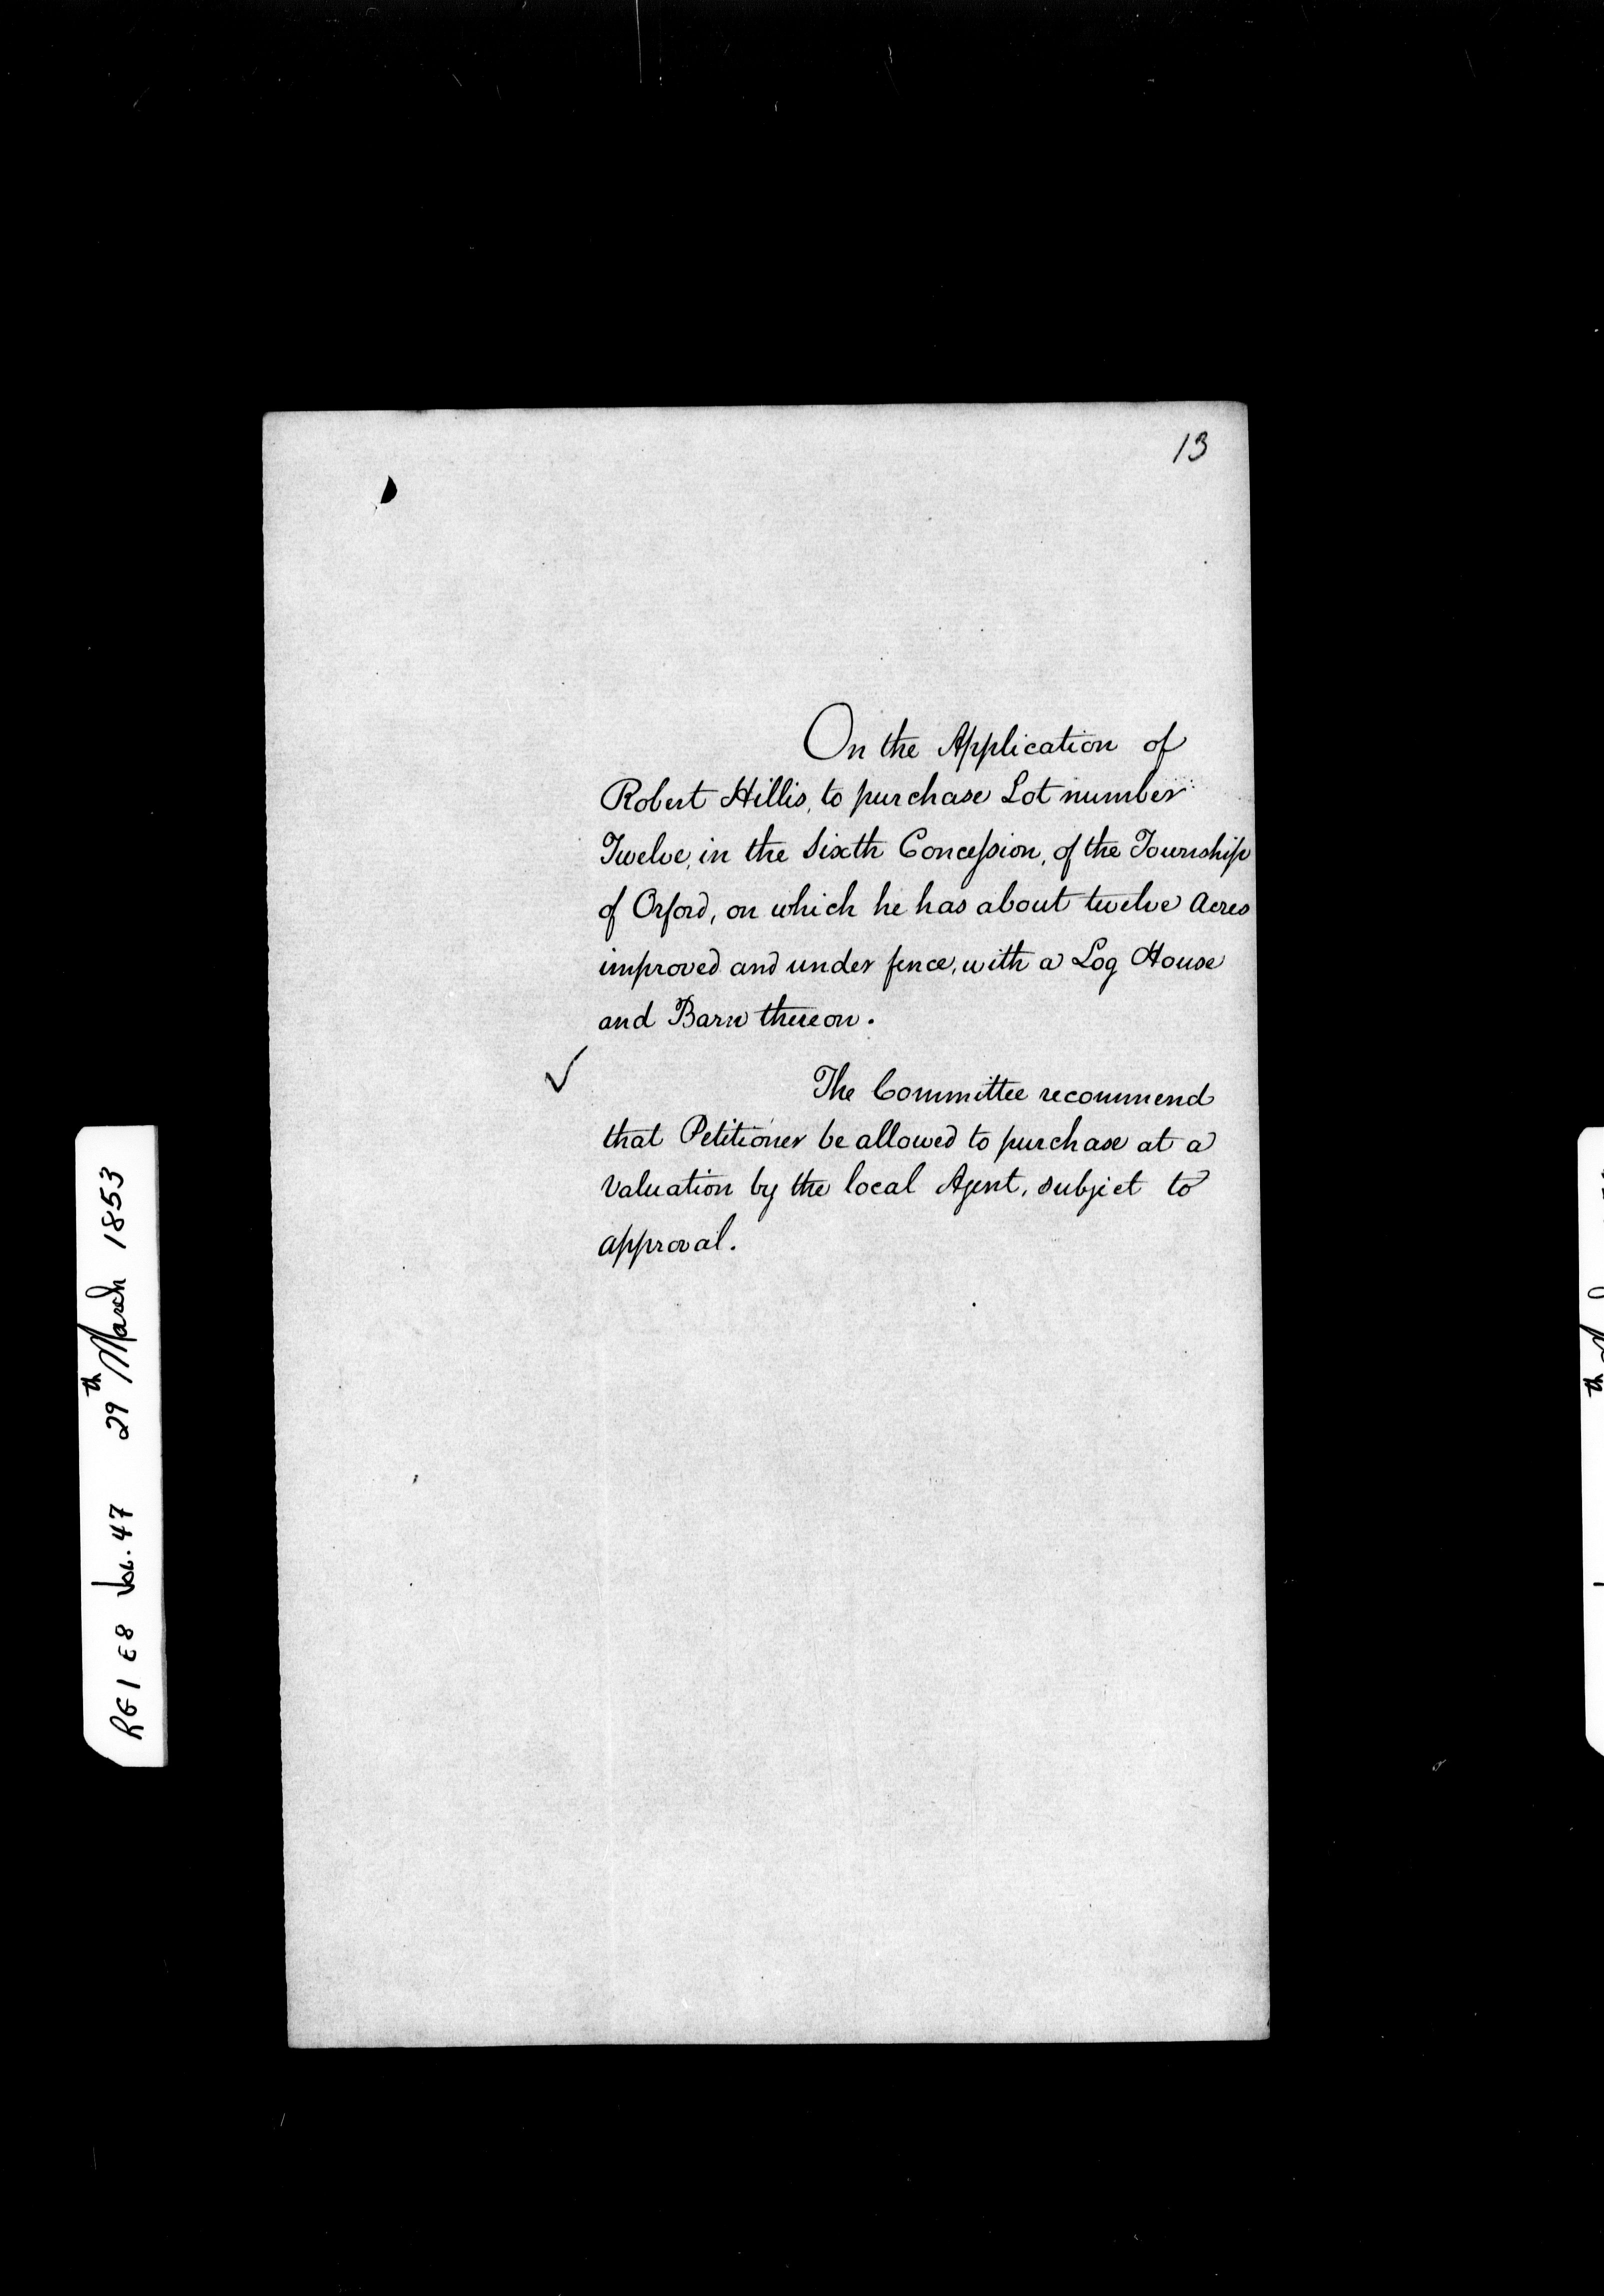 13
On the Application of
Robert Hillis, to purchase Lot number
Twelve, in the Sixth Concession, of the Township
of Orford, on which he has about twelve Acres
improved and under fence, with a Log House
and Barn thereon.
✓
The Committee recommend
that Petitioner be allowed to purchase at a
valuation by the local Agent, subject to
approval.
RG 1 E8 Vol. 47 29th March 1853
th